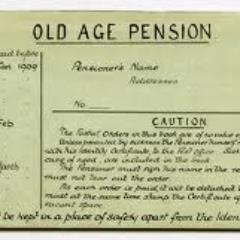 OLD AGE PENSION
before
Jan 1909
Pensioner's Name
Addressee
No.
Feb
CAUTION
The Postal Orders in this book are of no value
Unless presented by the Pensioner himself
with his Identity Certificate, to the Post office.
case of need, are included in the book
The Pensioner must sign his name in the
must not tear out the order.
As each order is paid, it will be detached
March
at the same time stamp the Certificate of
vacant space.
be kept in a place of safety apart from the Iden